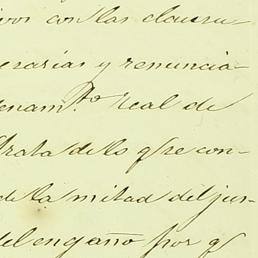 ivos con las clausu
esarias y renuncia-
enam.to real de
trata de lo q.e se con-
de la mitad del jus-
del engaño por q